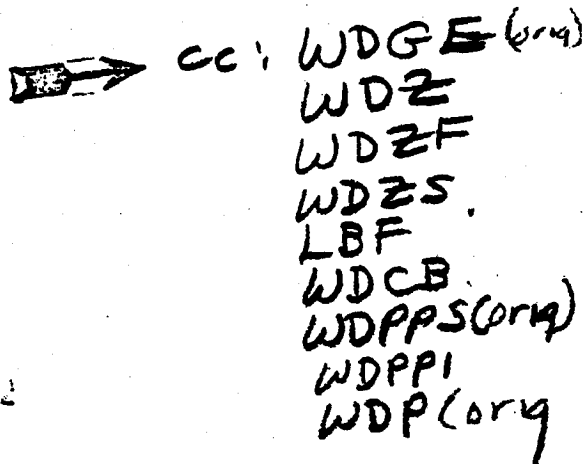 cc: WDGE (orig)
WDZ
WDZF
WDZS
LBF
WDCB
WDPPS (orig)
WDPPI
WDP (orig